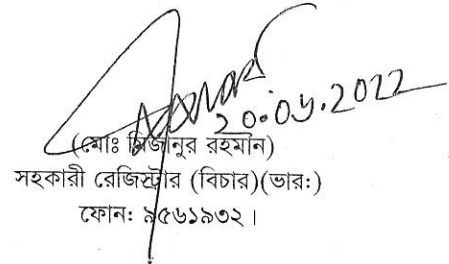 20.06.2022
(মোঃ মিজানুর রহমান)
সহকারী রেজিস্ট্রার (বিচার)(ভার:)
ফোন: ৯৫৬১৯৩২।